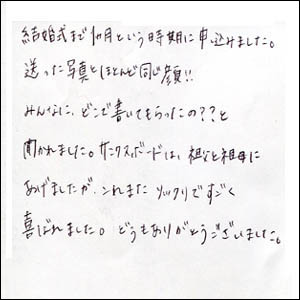 結婚式まで1ヶ月という時期に申込みました。
送った写真とほとんど同じ顔!!
みんなに、どこで書いてもらったの??と
聞かれました。サンクスボードは、祖父と祖母に
あげましたが、これまた ソックリですごく
喜ばれました。どうもありがとうございました。